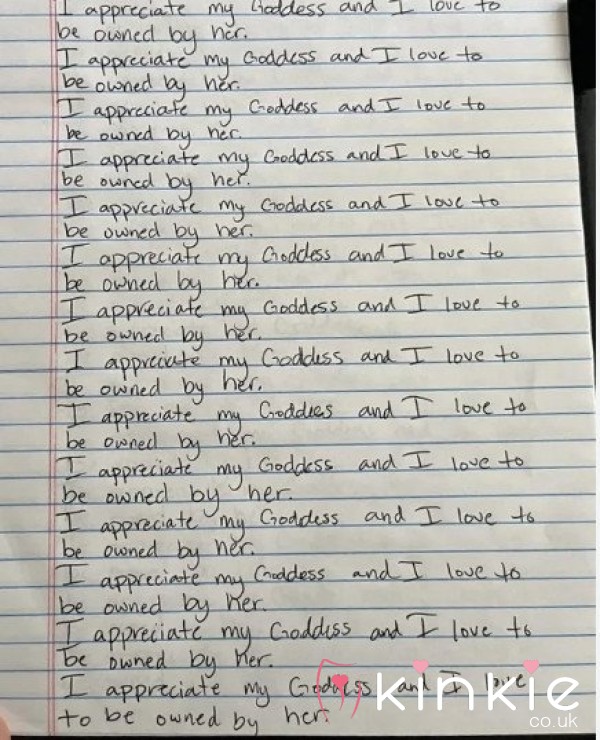 I appreciate my Goddess and I love to
be owned by her.
I appreciate my Goddess and I love to
be owned by her.
I appreciate my Goddess and I love to
be owned by her.
I appreciate my Goddess and I love to
be owned by her.
I appreciate my Goddess and I love to
be owned by her.
I appreciate my Goddess and I love to
be owned by her.
I appreciate my Goddess and I love to
be owned by her.
I appreciate my Goddess and I love to
be owned by her.
I appreciate my Goddess and I love to
be owned by her.
I appreciate my Goddess and I love to
be owned by her.
I appreciate my Goddess and I love to
be owned by her.
I appreciate my Goddess and I love to
be owned by her.
I appreciate my Goddess and I love to
be owned by her.
I appreciate my Goddess and I love
to be owned by her.
kinkie
co.uk